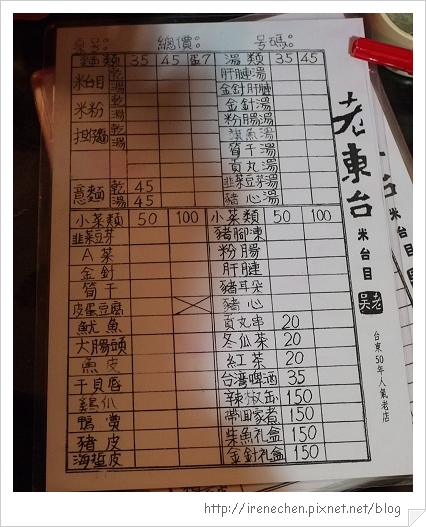 桌号: 總價: 号碼:
麵類 35 45 蛋7 湯類 35 45
米台目 乾 湯 肝腱湯
金針肝腱
米粉 乾 湯 金針湯
粉腸湯
担麵 乾 湯 柴魚湯
筍干湯
貢丸湯
意麵 乾 45 韭菜豆芽湯
湯 45 豬心湯
小菜類 50 100 小菜類 50 100
韭菜豆芽 豬腳凍
A菜 粉腸
金針 肝腱
筍干 豬耳朵
皮蛋豆腐 豬心
魷魚 貢丸串 20
大腸頭 冬瓜茶 20
魚皮 紅茶 20
干貝唇 台湾啤酒 35
鷄爪 辣椒缶 150
鴨賞 帶回家煮 150
豬皮 柴魚礼盒 150
海蜇皮 金針礼盒 150
老東台
米台目
老吳
台東50年人氣老店
http://irenechen.pixnet.net/blog